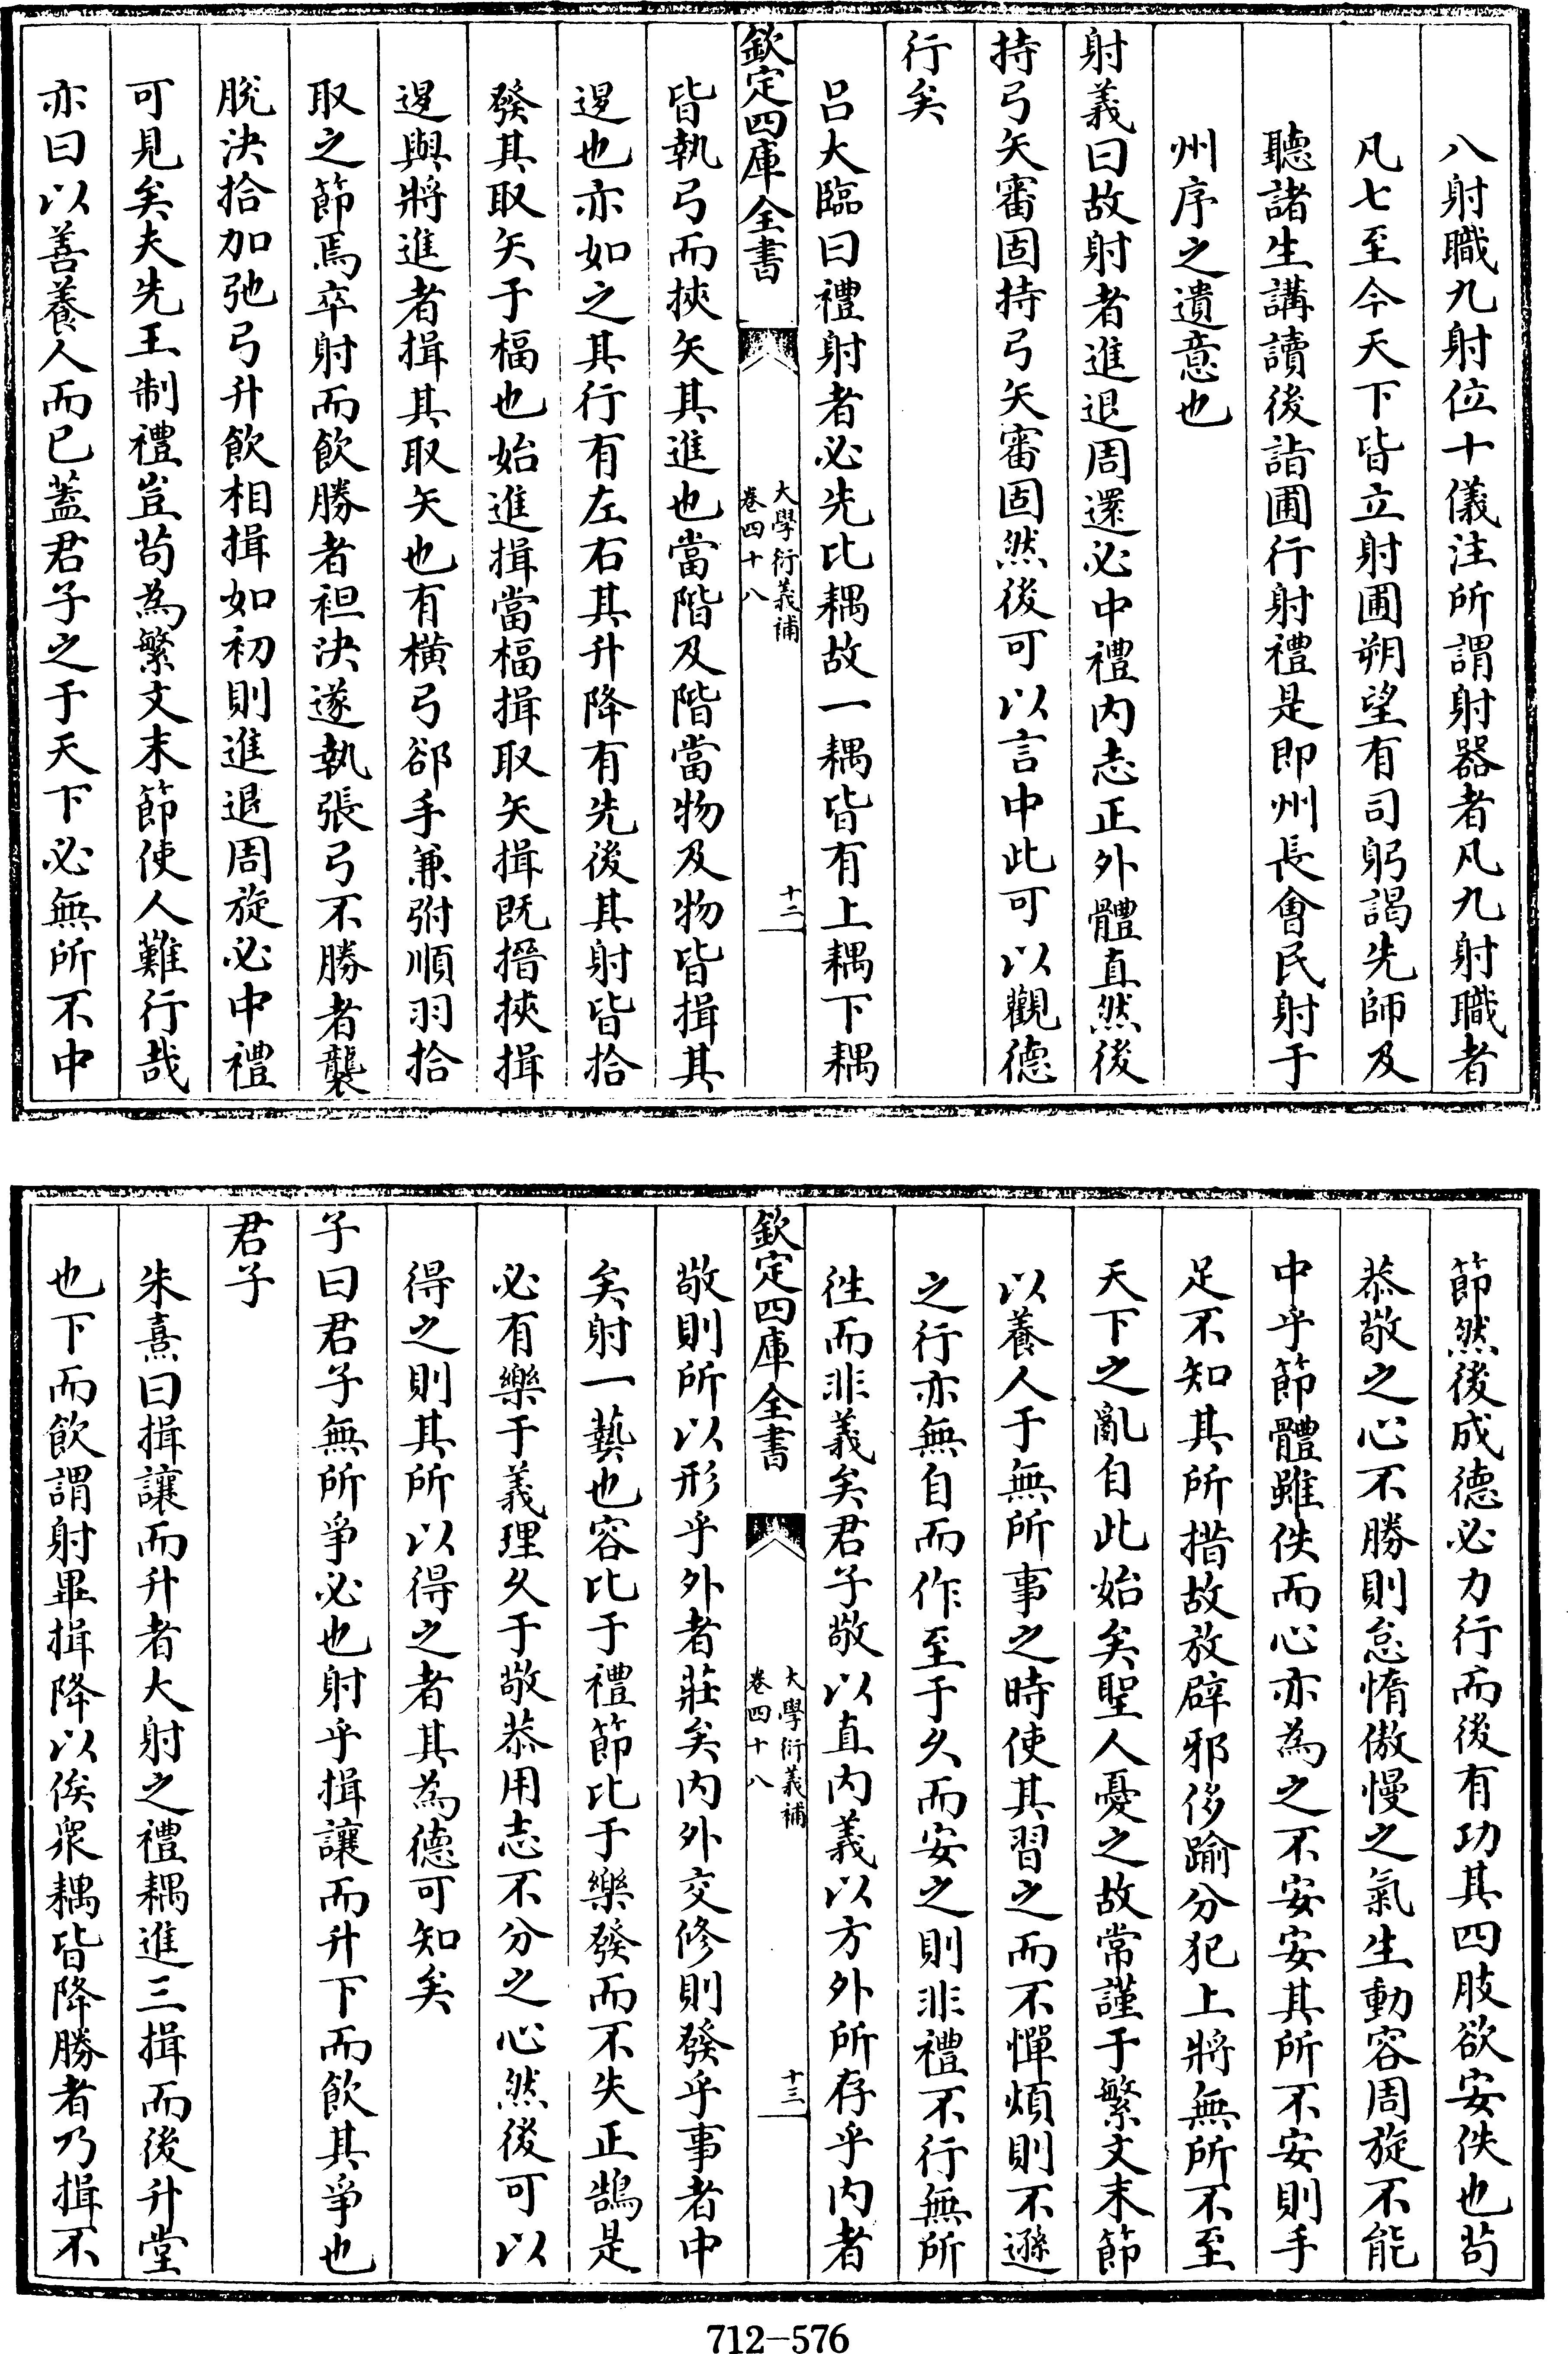 八射職九射位十儀注所謂射器者凡九射職者
凡七至今天下皆立射圃朔望有司躬謁先師及
聽諸生講讀後詣圃行射禮是即州長會民射于
州序之遺意也
射義曰故射者進退周還必中禮内志正外體直然後
持弓矢審固持弓矢審固然後可以言中此可以觀德
行矣
吕大臨曰禮射者必先比耦故一耦皆有上耦下耦
欽定四庫全書
大學衍義補
卷四十八
十二
皆執弓而挾矢其進也當階及階當物及物皆揖其
退也亦如之其行有左右其升降有先後其射皆拾
發其取矢于楅也始進揖當楅揖取矢揖既搢挾揖
退與將進者揖其取矢也有横弓郤手兼弣順羽拾
取之節焉卒射而飲勝者袒決遂執張弓不勝者襲
脱決拾加弛弓升飲相揖如初則進退周旋必中禮
可見矣夫先王制禮豈苟為繁文末節使人難行哉
亦曰以善養人而已葢君子之于天下必無所不中
節然後成德必力行而後有功其四肢欲安佚也苟
恭敬之心不勝則怠惰傲慢之氣生動容周旋不能
中乎節體雖佚而心亦為之不安安其所不安則手
足不知其所措故放辟邪侈踰分犯上將無所不至
天下之亂自此始矣聖人憂之故常謹于繁文末節
以養人于無所事之時使其習之而不憚煩則不遜
之行亦無自而作至于久而安之則非禮不行無所
徃而非義矣君子敬以直内義以方外所存乎内者
欽定四庫全書
大學衍義補
卷四十八
十三
敬則所以形乎外者莊矣内外交修則發乎事者中
矣射一藝也容比于禮節比于樂發而不失正鵠是
必有樂于義理久于敬恭用志不分之心然後可以
得之則其所以得之者其為德可知矣
子曰君子無所爭必也射乎揖讓而升下而飲其爭也
君子
朱熹曰揖讓而升者大射之禮耦進三揖而後升堂
也下而飲謂射畢揖降以俟衆耦皆降勝者乃揖不
712-576